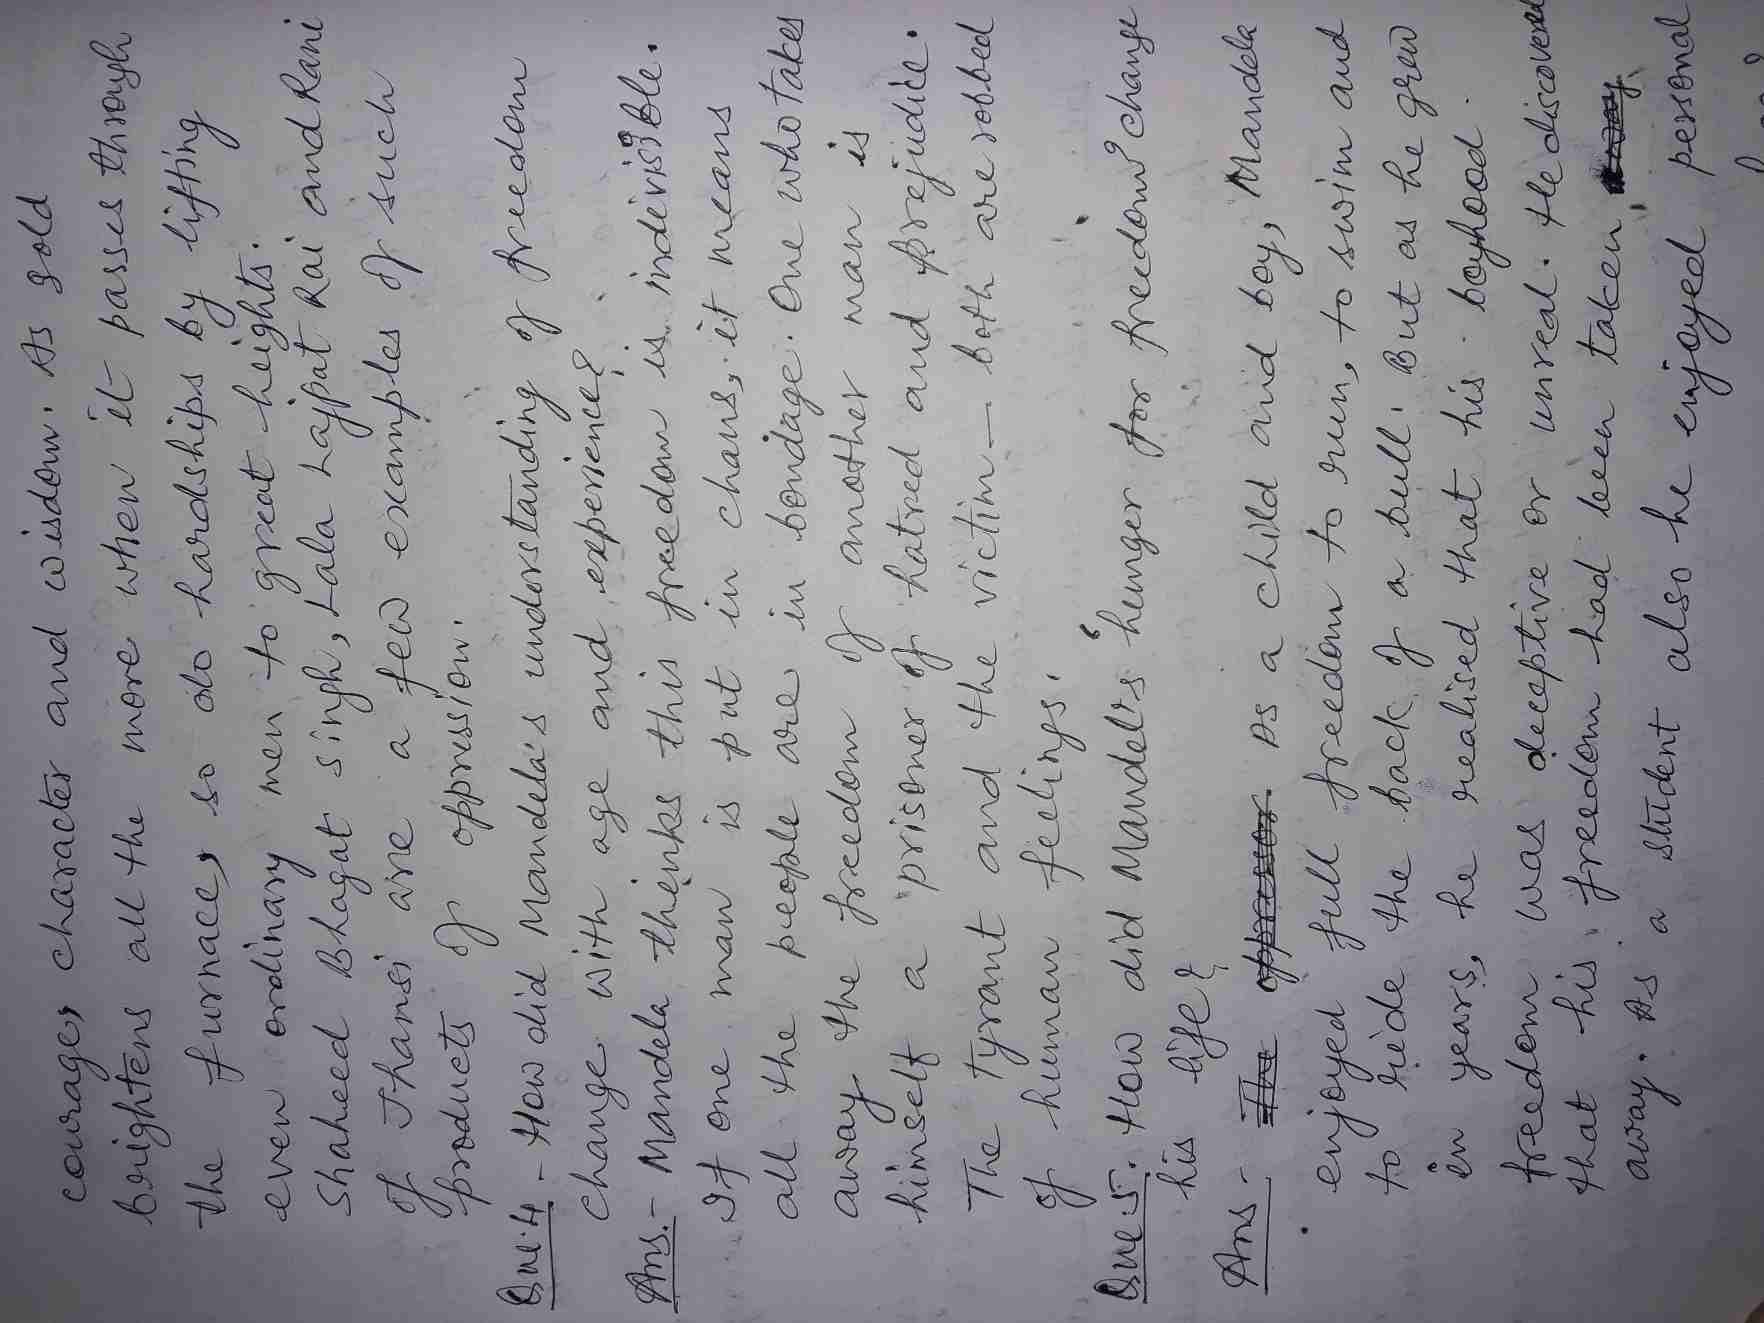 courage, character and wisdom. As gold
brightens all the more when it passes through
the furnace, so do hardships by lifting
even ordinary men to great heights.
Shaheed Bhagat Singh, Lala Lajpat Rai and Rani
of Jhansi are a few examples of such
products of oppression.
Que.4 - How did Mandela's understanding of freedom
change with age and experience?
Ans. - Mandela thinks this freedom is indivisible.
If one man is put in chans, it means
all the people are in bondage. One who takes
away the freedom of another man is
himself a prisoner of hatred and prejudice.
The tyrant and the victim — both are robbed
of human feelings.
Que.5. How did Mandel's 'hunger for freedom' change
his life?
Ans - The As a child and boy, Mandela
enjoyed full freedom to run, to swim and
to ride the back of a bull. But as he grew
in years, he realised that his boyhood
freedom was deceptive or unreal. He discovered
that his freedom had been taken
away. As a student also he enjoyed personal